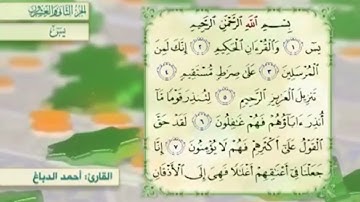 الجزء الثاني والعشرون
يسٓ
بِسْمِ اللَّهِ الرَّحْمَٰنِ الرَّحِيمِ
يسٓ ١ وَالْقُرْءَانِ الْحَكِيمِ ٢ إِنَّكَ لَمِنَ
الْمُرْسَلِينَ ٣ عَلَىٰ صِرَٰطٍ مُّسْتَقِيمٍ ٤
تَنزِيلَ الْعَزِيزِ الرَّحِيمِ ٥ لِتُنذِرَ قَوْمًا مَّا
أُنذِرَ ءَابَاؤُهُمْ فَهُمْ غَٰفِلُونَ ٦ لَقَدْ حَقَّ
الْقَوْلُ عَلَىٰ أَكْثَرِهِمْ فَهُمْ لَا يُؤْمِنُونَ ٧ إِنَّا
جَعَلْنَا فِي أَعْنَٰقِهِمْ أَغْلَٰلًا فَهِيَ إِلَى الْأَذْقَانِ
القارئ: أحمد الدباغ